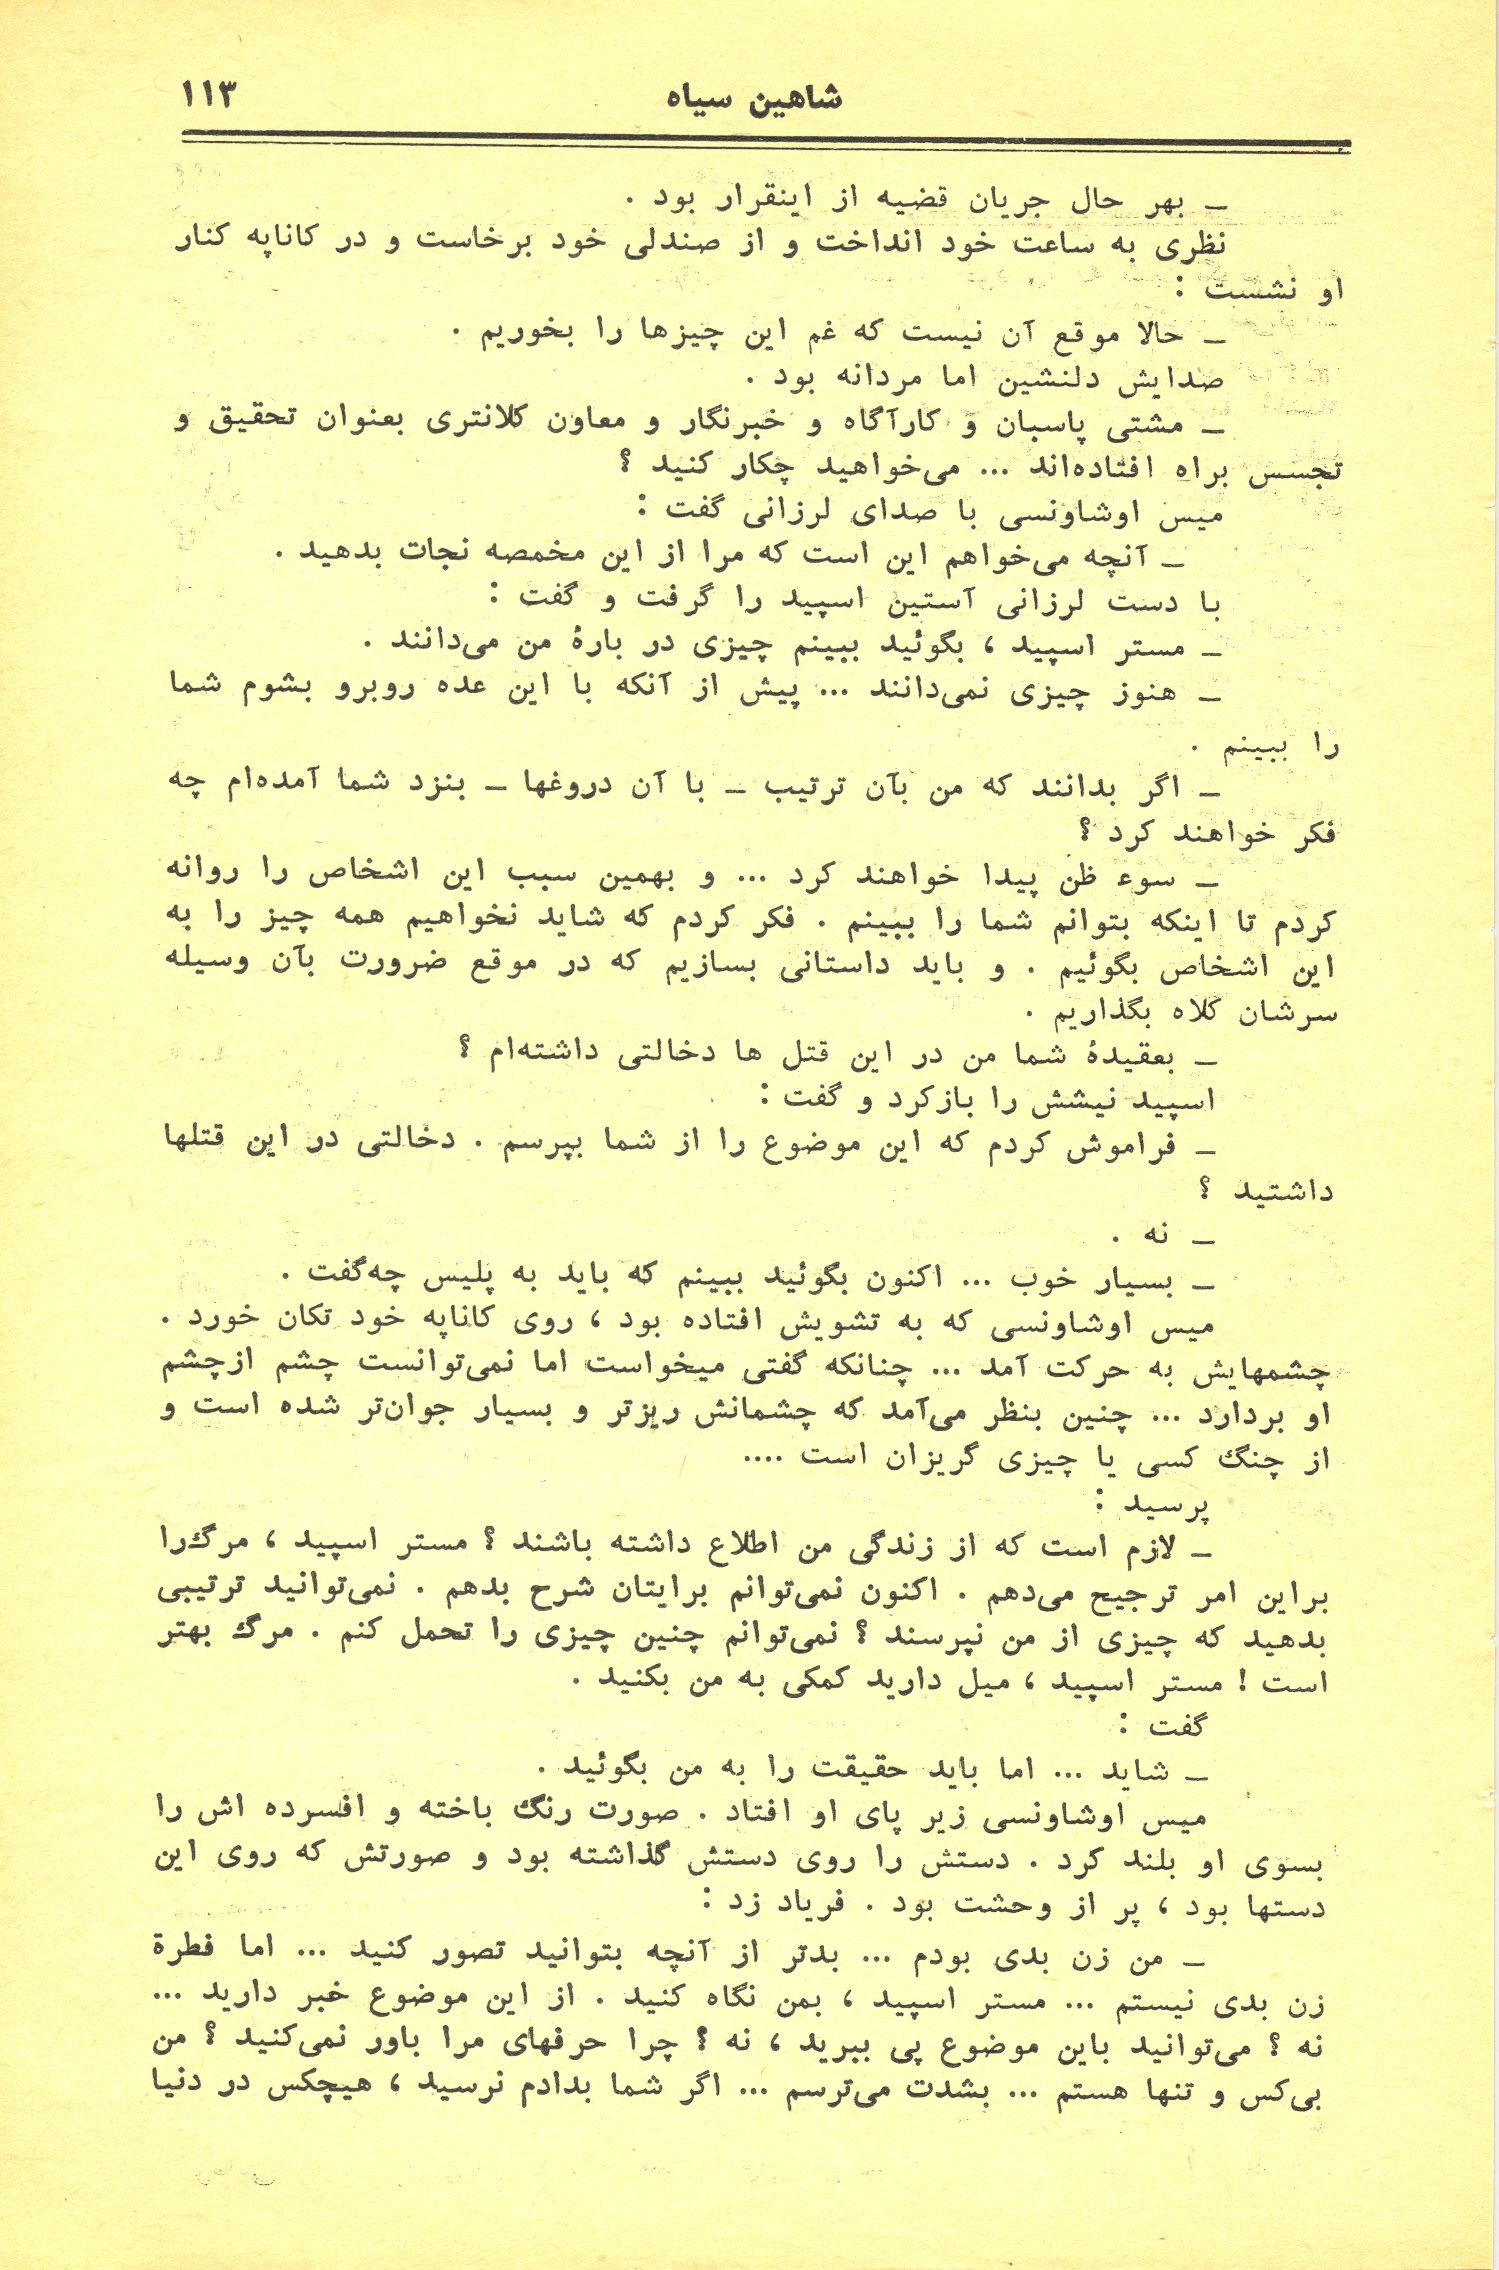 شاهین سیاه
۱۱۳
ـ بهر حال جریان قضیه از اینقرار بود .
نظری به ساعت خود انداخت و از صندلی خود برخاست و در کاناپه کنار
او نشست :
ـ حالا موقع آن نیست که غم این چیزها را بخوریم .
صدایش دلنشین اما مردانه بود .
ـ مشتی پاسبان و کارآگاه و خبرنگار و معاون کلانتری بعنوان تحقیق و
تجسس براه افتاده‌اند ... می‌خواهید چکار کنید ؟
میس اوشاونسی با صدای لرزانی گفت :
ـ آنچه می‌خواهم این است که مرا از این مخمصه نجات بدهید .
با دست لرزانی آستین اسپید را گرفت و گفت :
ـ مستر اسپید ، بگوئید ببینم چیزی در بارهٔ من می‌دانند .
ـ هنوز چیزی نمی‌دانند ... پیش از آنکه با این عده روبرو بشوم شما
را ببینم .
ـ اگر بدانند که من بآن ترتیب ـ با آن دروغها ـ بنزد شما آمده‌ام چه
فکر خواهند کرد ؟
ـ سوء ظن پیدا خواهند کرد ... و بهمین سبب این اشخاص را روانه
کردم تا اینکه بتوانم شما را ببینم . فکر کردم که شاید نخواهیم همه چیز را به
این اشخاص بگوئیم . و باید داستانی بسازیم که در موقع ضرورت بآن وسیله
سرشان کلاه بگذاریم .
ـ بعقیدهٔ شما من در این قتل ها دخالتی داشته‌ام ؟
اسپید نیشش را بازکرد و گفت :
ـ فراموش کردم که این موضوع را از شما بپرسم . دخالتی در این قتلها
داشتید ؟
ـ نه .
ـ بسیار خوب ... اکنون بگوئید ببینم که باید به پلیس چه‌گفت .
میس اوشاونسی که به تشویش افتاده بود ، روی کاناپه خود تکان خورد .
چشمهایش به حرکت آمد ... چنانکه گفتی میخواست اما نمی‌توانست چشم ازچشم
او بردارد ... چنین بنظر می‌آمد که چشمانش ریزتر و بسیار جوان‌تر شده است و
از چنگ کسی یا چیزی گریزان است ....
پرسید :
ـ لازم است که از زندگی من اطلاع داشته باشند ؟ مستر اسپید ، مرگ‌را
براین امر ترجیح می‌دهم . اکنون نمی‌توانم برایتان شرح بدهم . نمی‌توانید ترتیبی
بدهید که چیزی از من نپرسند ؟ نمی‌توانم چنین چیزی را تحمل کنم . مرگ بهتر
است ! مستر اسپید ، میل دارید کمکی به من بکنید .
گفت :
ـ شاید ... اما باید حقیقت را به من بگوئید .
میس اوشاونسی زیر پای او افتاد . صورت رنگ باخته و افسرده اش را
بسوی او بلند کرد . دستش را روی دستش گذاشته بود و صورتش که روی این
دستها بود ، پر از وحشت بود . فریاد زد :
ـ من زن بدی بودم ... بدتر از آنچه بتوانید تصور کنید ... اما فطرة
زن بدی نیستم ... مستر اسپید ، بمن نگاه کنید . از این موضوع خبر دارید ...
نه ؟ می‌توانید باین موضوع پی ببرید ، نه ؟ چرا حرفهای مرا باور نمی‌کنید ؟ من
بی‌کس و تنها هستم ... بشدت می‌ترسم ... اگر شما بدادم نرسید ، هیچکس در دنیا